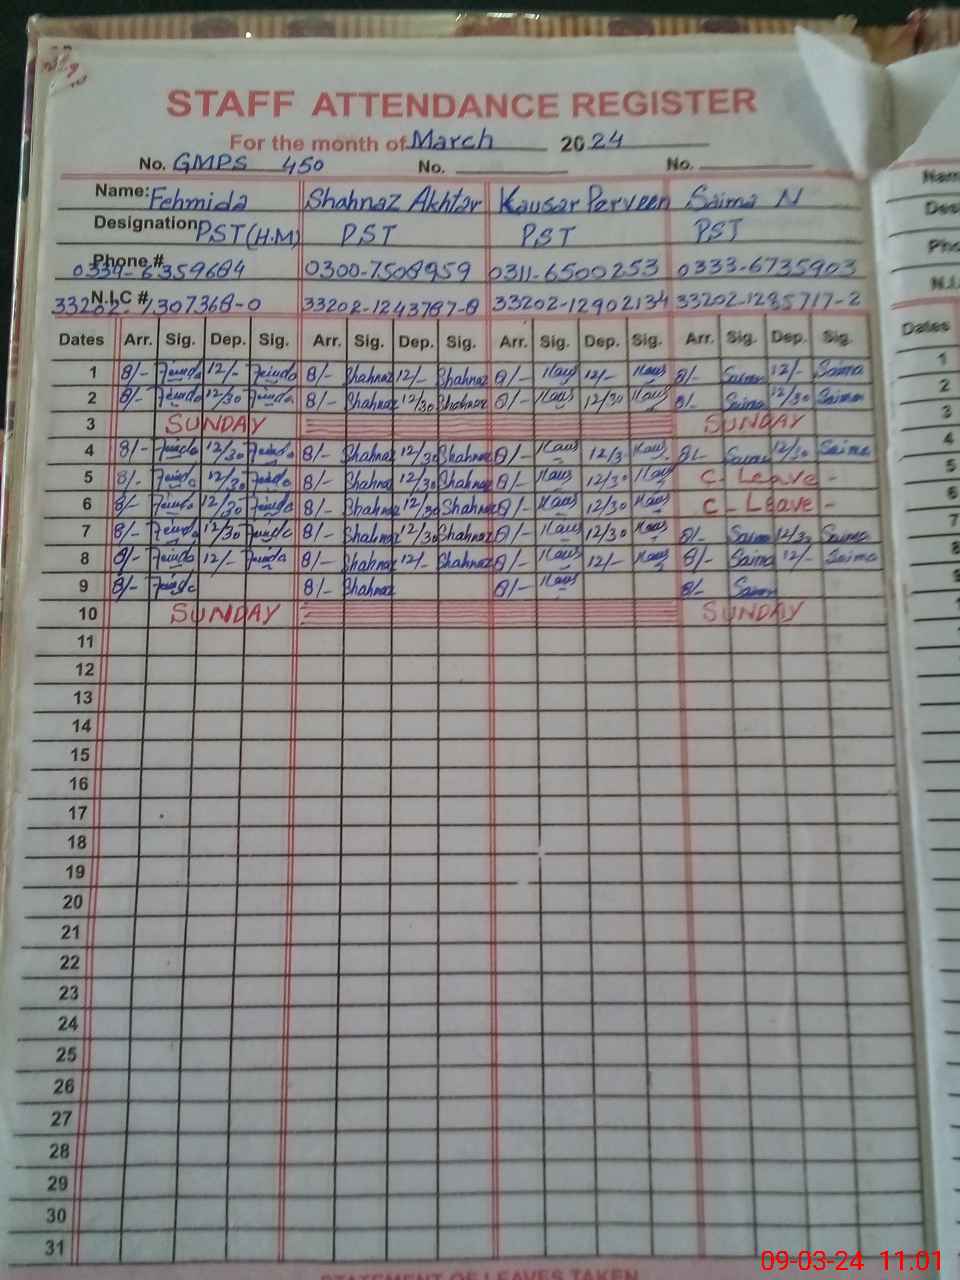 STAFF ATTENDANCE REGISTER
For the month of March 2024
No. GMPS 450 No. No.
Name: Fehmida Shahnaz Akhtar Kausar Perveen Saima N
Designation PST (H.M) PST PST PST
Phone # 0334-6359684 0300-7508959 0311-6500253 0333-6735903
N.I.C # 33202-7307368-0 33202-1243787-8 33202-12902134 33202-1285717-2
Dates Arr. Sig. Dep. Sig. Arr. Sig. Dep. Sig. Arr. Sig. Dep. Sig. Arr. Sig. Dep. Sig.
1 8/- 12/- 8/- Shahnaz 12/- Shahnaz 8/- Kaus 12/- Kaus 8/- Saima 12/- Saima
2 8/- 12/30 8/- Shahnaz 12/30 Shahnaz 8/- Kaus 12/30 Kaus 8/- Saima 12/30 Saima
3 SUNDAY SUNDAY
4 8/- 12/30 8/- Shahnaz 12/30 Shahnaz 8/- Kaus 12/3 Kaus 8/- Saima 12/30 Saima
5 8/- 12/30 8/- Shahnaz 12/30 Shahnaz 8/- Kaus 12/30 Kaus C- Leave -
6 8/- 12/30 8/- Shahnaz 12/30 Shahnaz 8/- Kaus 12/30 Kaus C- Leave -
7 8/- 12/30 8/- Shahnaz 12/30 Shahnaz 8/- Kaus 12/30 Kaus 8/- Saima 12/30 Saima
8 8/- 12/- 8/- Shahnaz 12/- Shahnaz 8/- Kaus 12/- Kaus 8/- Saima 12/- Saima
9 8/- 8/- Shahnaz 8/- Kaus 8/- Saima
10 SUNDAY SUNDAY
11
12
13
14
15
16
17
18
19
20
21
22
23
24
25
26
27
28
29
30
31
STATEMENT OF LEAVES TAKEN
Dates
1
2
3
4
5
6
7
8
09-03-24 11.01